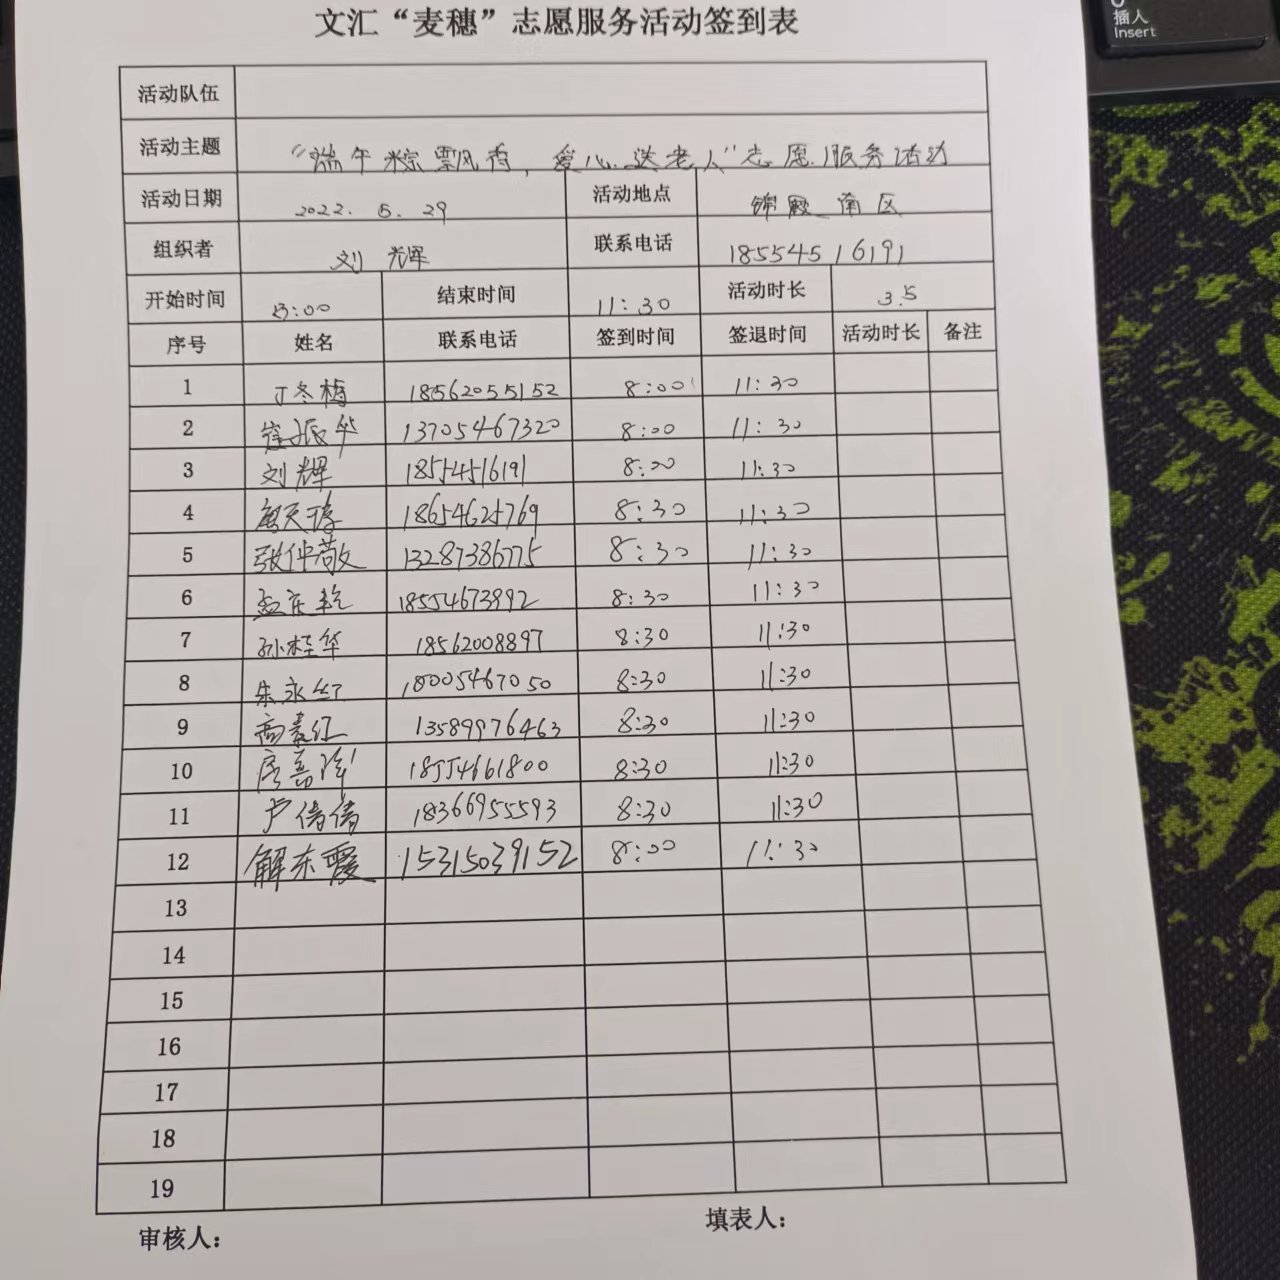 插入
Insert
文汇“麦穗”志愿服务活动签到表
活动队伍
活动主题 “端午粽飘香，爱心送老人”志愿服务活动
活动日期 2022. 5. 29 活动地点 锦殿南区
组织者 刘辉 联系电话 18554516191
开始时间 8:00 结束时间 11:30 活动时长 3.5
序号 姓名 联系电话 签到时间 签退时间 活动时长 备注
1 丁冬梅 18562055152 8:00 11:30
2 崔振华 13705467320 8:00 11:30
3 刘辉 18554516191 8:00 11:30
4 18654625769 8:30 11:30
5 张仲敬 13287386775 8:30 11:30
6 8:30 11:30
7 孙桂华 18562008897 8:30 11:30
8 朱永红 18005467050 8:30 11:30
9 高素红 13589976463 8:30 11:30
10 18554661800 8:30 11:30
11 卢倩倩 18366955593 8:30 11:30
12 解东霞 15315039152 8:00 11:30
13
14
15
16
17
18
19
审核人： 填表人：